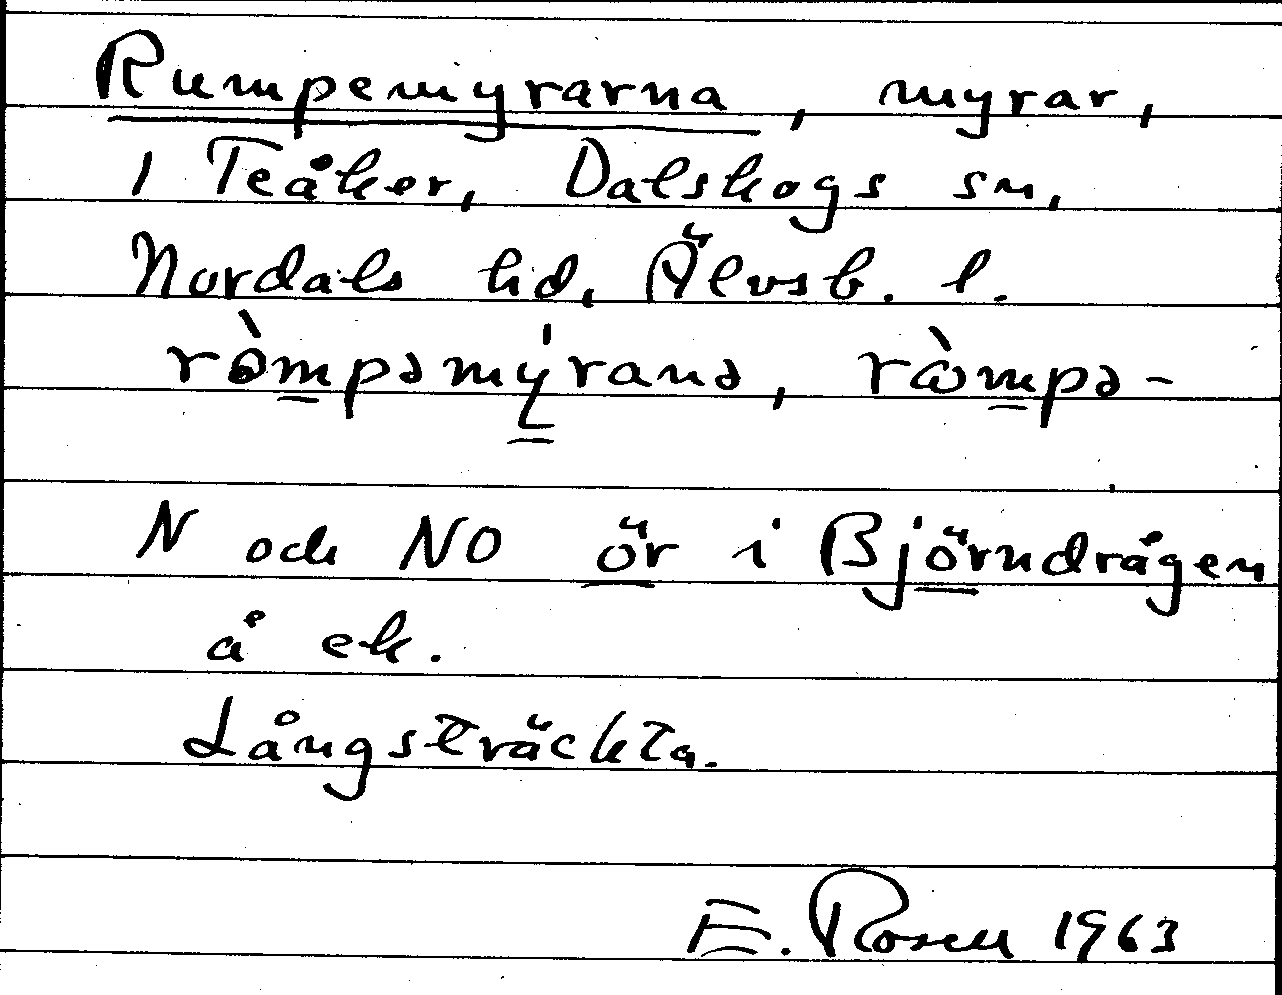 Rumpemyrarna, myrar,
i Teåker, Dalskogs sn,
Nordals hd, Älvsb. l.
ròmpəmýranə, ròmpə-
N och NO ör i Björndrågen
å ek.
Långsträckta.
E. Rosell 1963